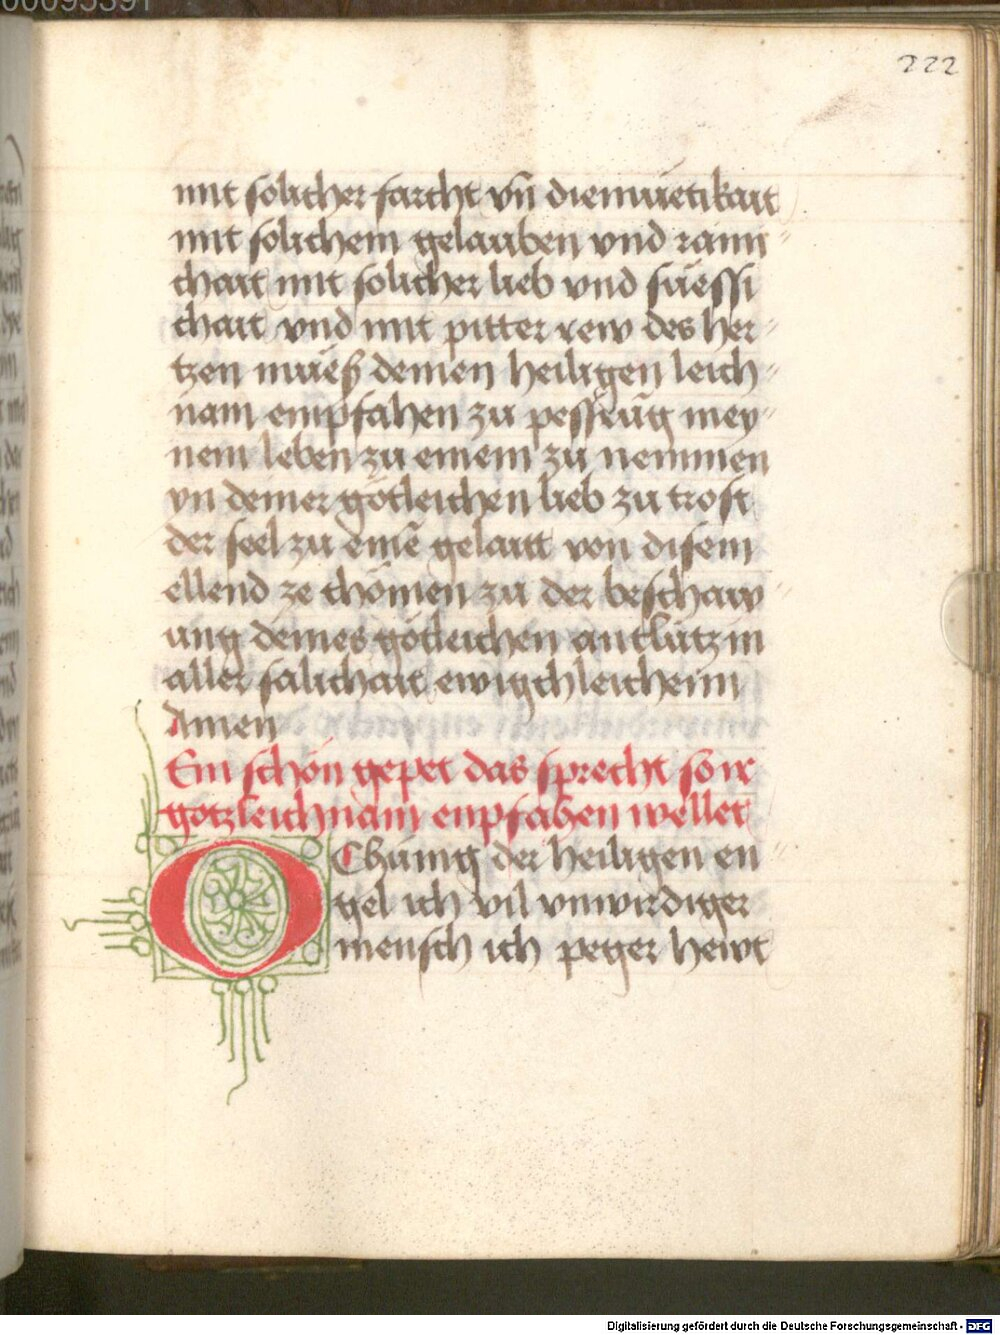 00095391
222
mit solicher farcht vn̄ diemuetikait
mit solichem gelauben vnd raini〃
chait mit solicher lieb vnd suessi
chait vnd mit pitter rew des her〃
tzen mueß deinen heiligen leich〃
nam empfahen zu pessrūg mey〃
nem leben zu einem zu nemmen
yn deiner götleichen lieb zu trost
der seel zu einē gelaitt von disem
ellend ze chömen zu der beschaw〃
ung deines götleichen antlütz in
aller salichait ewigchleichenn
Amen
Ein schön gepet das sprecht so ir
gotzleichnam enpfahen wellet
O Chunig der heiligen en
gel ich vil vnwirdiger
mensch ich peger hewt
Digitalisierung gefördert durch die Deutsche Forschungsgemeinschaft - DFG